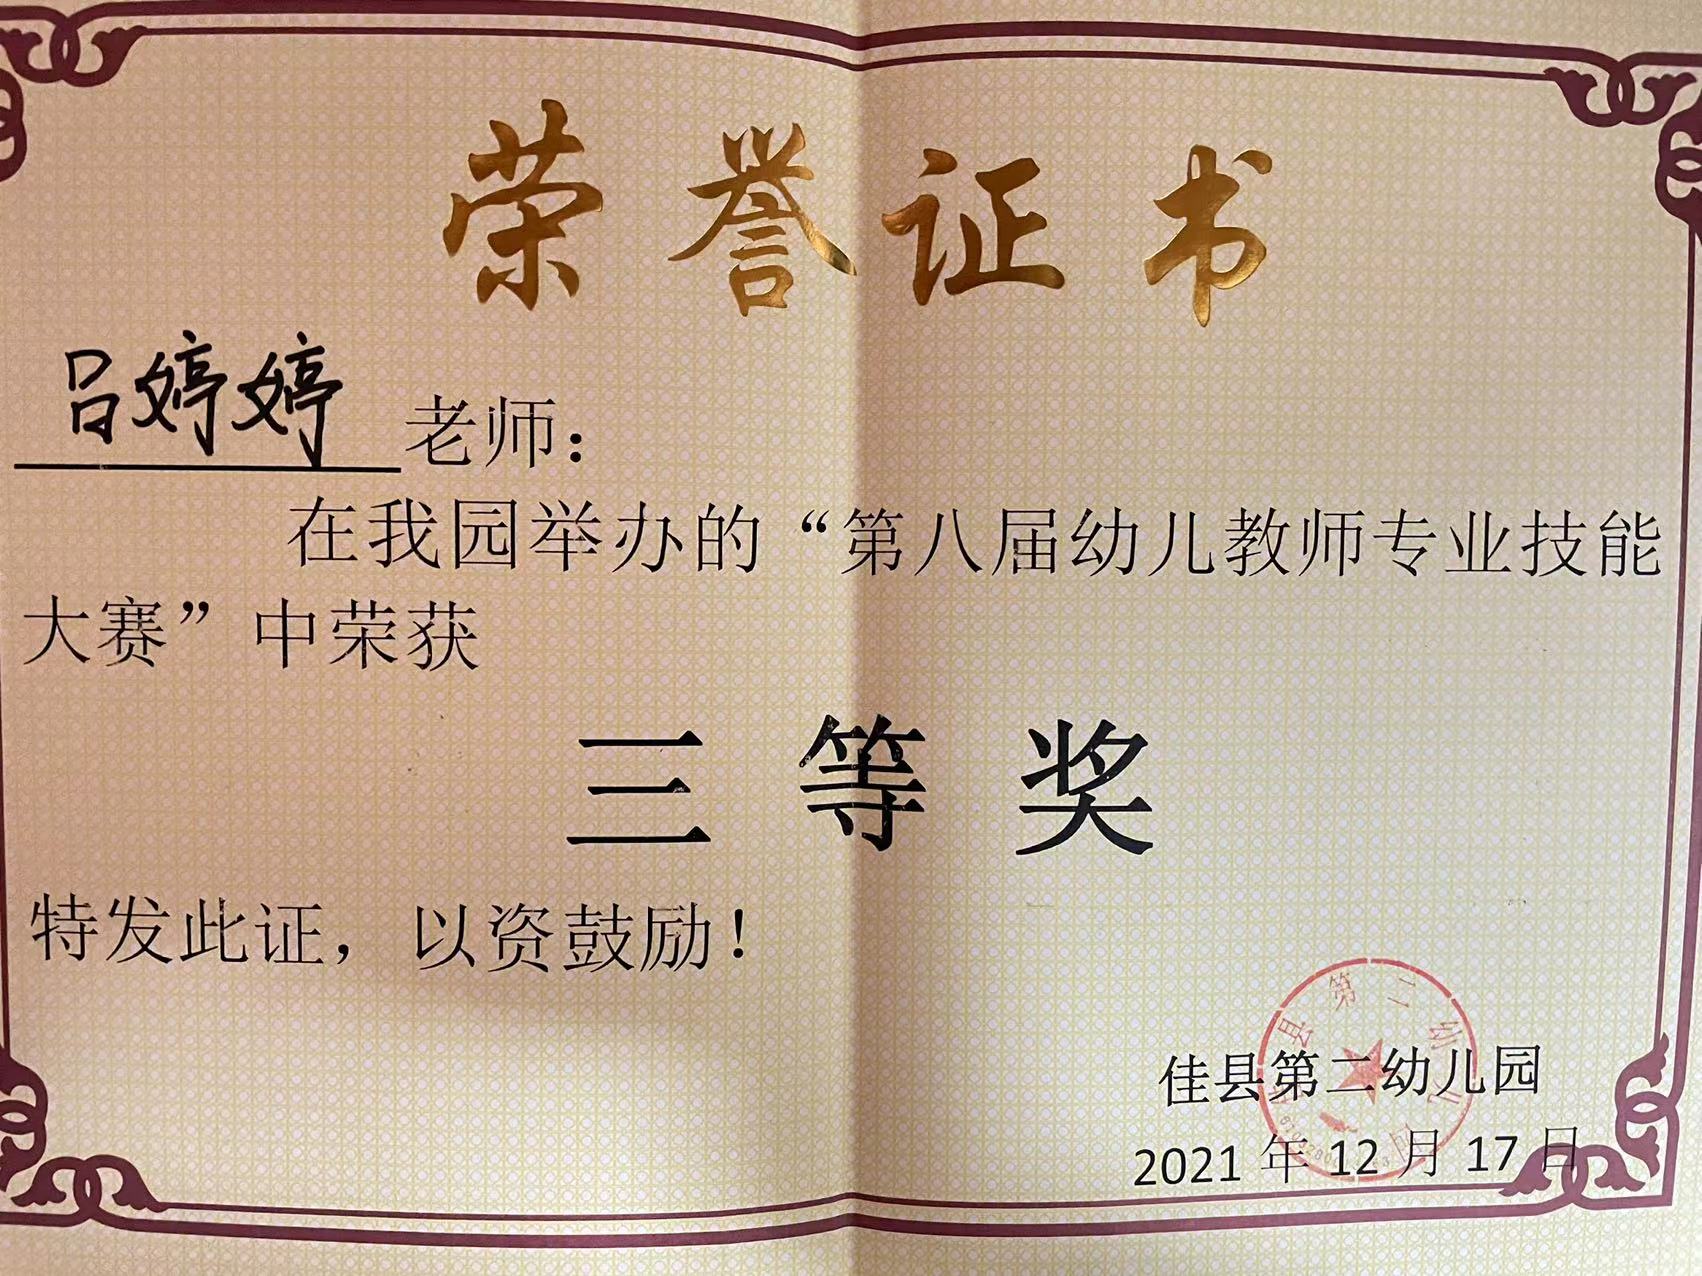 荣誉证书
吕婷婷老师：
在我园举办的“第八届幼儿教师专业技能
大赛”中荣获
三等奖
特发此证，以资鼓励！
佳县第二幼儿园
2021 年 12 月 17 日
县第二幼儿园